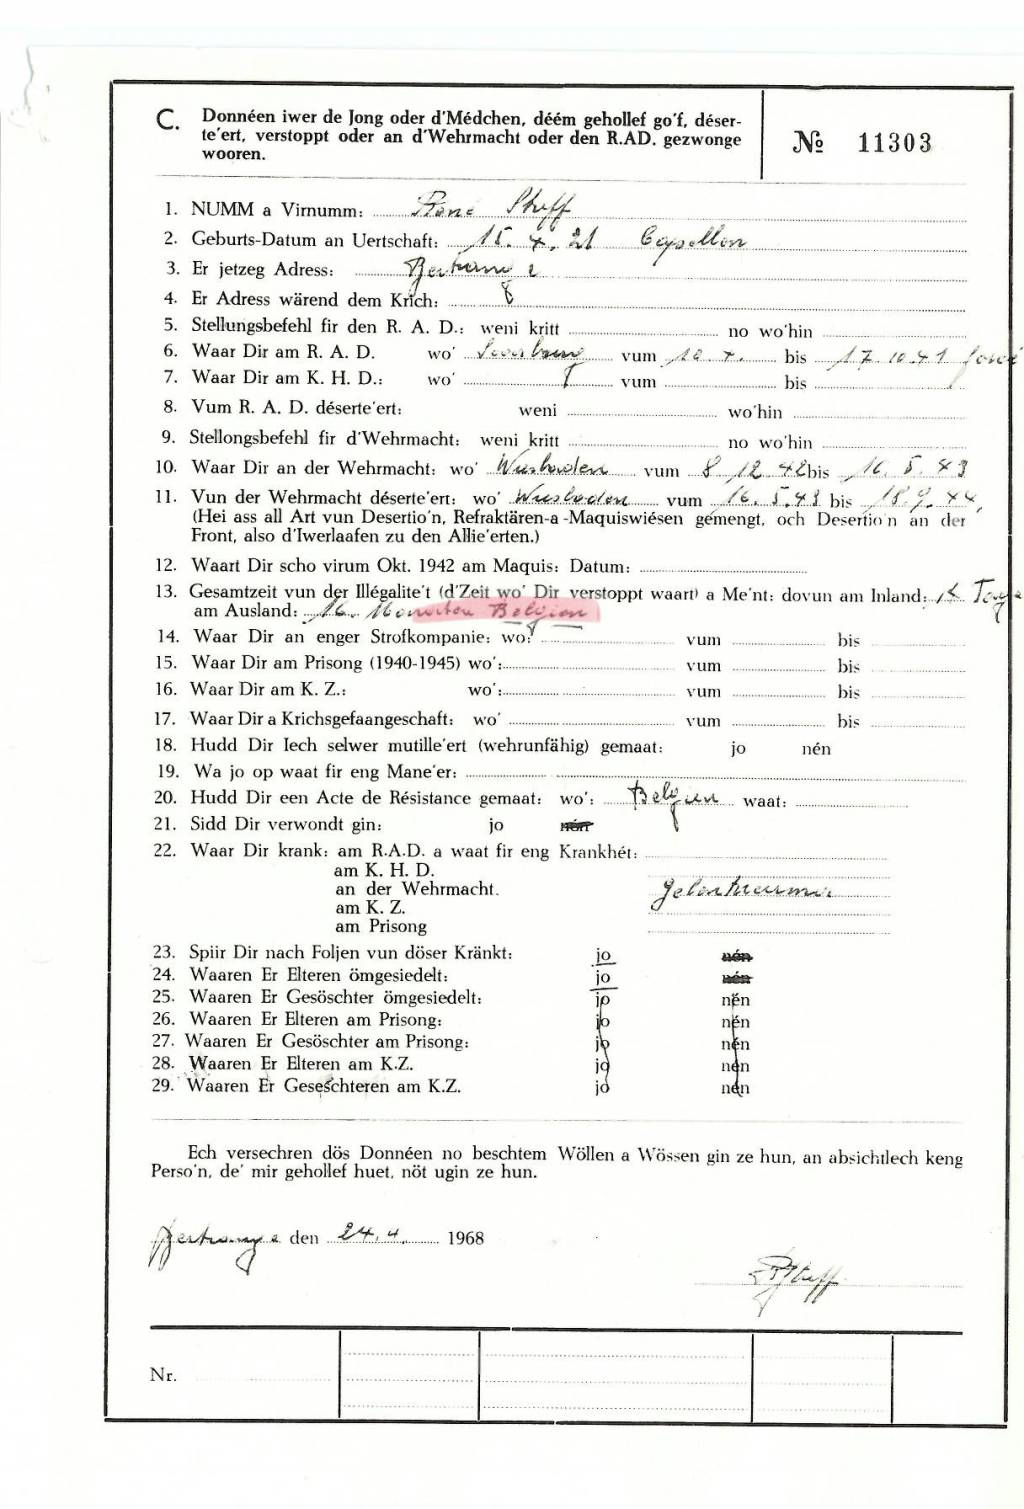 C. Donnéen iwer de Jong oder d'Médchen, déém gehollef go'f, déser-
te'ert, verstoppt oder an d'Wehrmacht oder den R.AD. gezwonge
wooren.
№ 11303
1. NUMM a Virnumm: René Steff
2. Geburts-Datum an Uertschaft: 15. 4. 21 Capellen
3. Er jetzeg Adress: Bertrange
4. Er Adress wärend dem Krich:
5. Stellungsbefehl fir den R. A. D.: weni kritt no wo'hin
6. Waar Dir am R. A. D. wo' vum bis 17.10.41
7. Waar Dir am K. H. D.: wo' vum bis
8. Vum R. A. D. déserte'ert: weni wo'hin
9. Stellongsbefehl fir d'Wehrmacht: weni kritt no wo'hin
10. Waar Dir an der Wehrmacht: wo' Wiesbaden vum 8 12 42 bis 16. 5. 43
11. Vun der Wehrmacht déserte'ert: wo' Wiesbaden vum 16. 5. 43 bis 18. 9. 44
(Hei ass all Art vun Desertio'n, Refraktären-a -Maquiswiésen gemengt, och Desertio'n an der
Front, also d'Iwerlaafen zu den Allie'erten.)
12. Waart Dir scho virum Okt. 1942 am Maquis: Datum:
13. Gesamtzeit vun der Illégalite't (d'Zeit wo' Dir verstoppt waart) a Me'nt: dovun am Inland: Tage
am Ausland: 16 Monaten Belgien
14. Waar Dir an enger Strofkompanie: wo: vum bis
15. Waar Dir am Prison (1940-1945) wo': vum bis
16. Waar Dir am K. Z.: wo': vum bis
17. Waar Dir a Krichsgefaangeschaft: wo' vum bis
18. Hudd Dir Iech selwer mutille'ert (wehrunfähig) gemaat: jo nén
19. Wa jo op waat fir eng Mane'er:
20. Hudd Dir een Acte de Résistance gemaat: wo': Belgien waat:
21. Sidd Dir verwondt gin: jo nén
22. Waar Dir krank: am R.A.D. a waat fir eng Krankhét:
am K. H. D.
an der Wehrmacht. Gelenkreuma
am K. Z.
am Prisong
23. Spiir Dir nach Foljen vun döser Kränkt: jo nén
24. Waaren Er Elteren ömgesiedelt: jo nén
25. Waaren Er Gesöschter ömgesiedelt: jo nén
26. Waaren Er Elteren am Prisong: jo nén
27. Waaren Er Gesöschter am Prisong: jo nén
28. Waaren Er Elteren am K.Z. jo nén
29. Waaren Er Geseschteren am K.Z. jo nén
Ech versechren dös Donnéen no beschtem Wöllen a Wössen gin ze hun, an absichtlech keng
Perso'n, de' mir gehollef huet, nöt ugin ze hun.
Bertrange den 24. 4. 1968
RSteff
Nr.